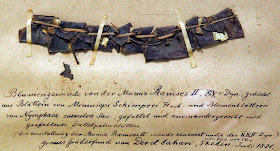 Blumengewinde von der Mumie Ramses II, XX Dyn, gebildet
aus Blättern von Mimusops Schimperi Hoch. und Blumenblättern
von Nymphaea caerulea Sav, gefaltet und aneinandergereiht mit
gespaltenen Dattelpalmblättern
(die Ausstellung der Mumie Ramses II wurde erneuert unter der XXI Dyn)
Gräberfund von Der el Bahari, Theben